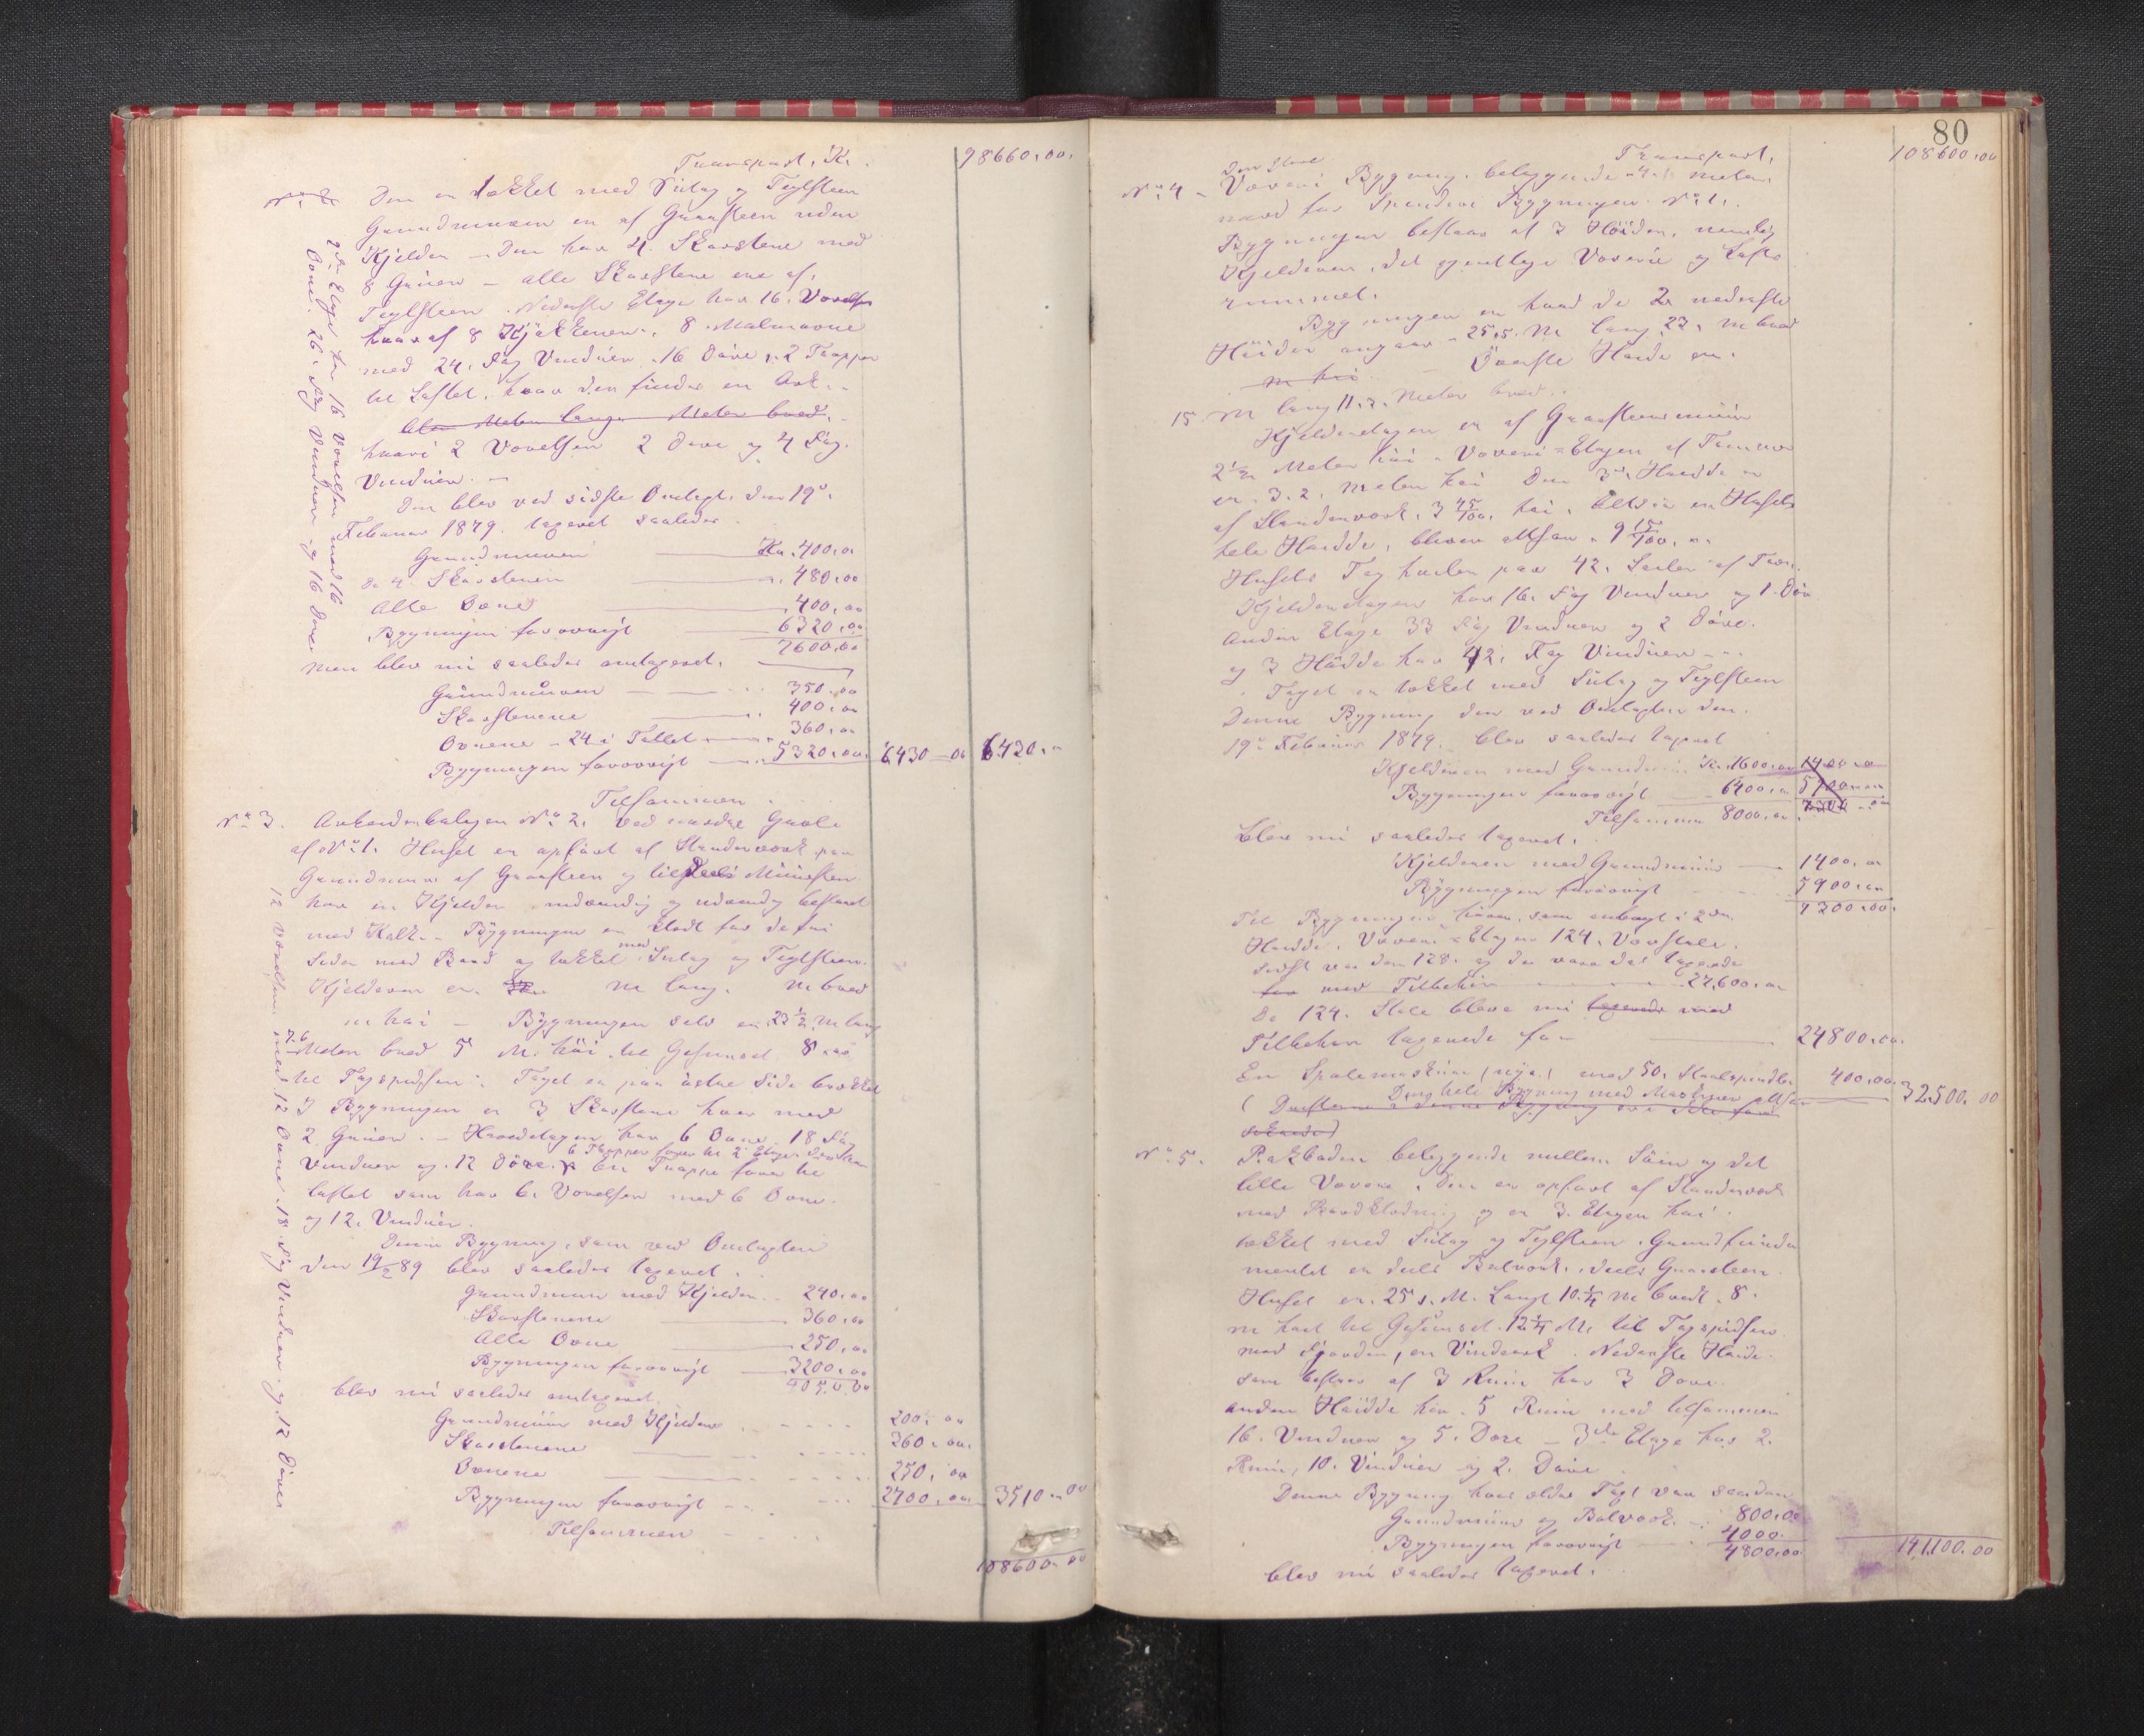 Transport, Kr. 98660.00.
No. 2 Den er tækket med Sutag og Teglsteen
Grundmuren er af Graasteen uden
Kjelder – Den har 4. Skorstene med
8 Gruer – alle Skorstene ere af
Teglsteen. Nederste Etage har 16. Værelser
hvoraf 8 Kjøkkener, 8 Malmovne
med 24. Fag Vinduer, 16 Døre, 2 Trapper
til Loftet, hvor der findes en Ark.
Meter lang Meter bred.
hvori 2 Værelser 2 Døre og 4 Fag.
Vinduer. –
Den blev ved sidste Omtagt. den 19de
Februar 1879. taxeret saaledes.
Grundmuren Kr. 400.00
De 4 Skorstenen 480.00
Alle Ovne 400.00
Bygningen forøvrigt 6320.00
7600.00
Men blev nu saaledes omtaxeret.
Grundmuren 350.00
Skorstenene 400.00
Ovnene – 24 i Tallet 360.00
Bygningen forøvrigt 5320.00. 6430–00 6430.–
Tilsammen.
2den Etage har 16 Værelser med 16
Ovne. 26. Fag Vinduer og 16 Døre
No. 3. Arbeiderboligen No. 2. ved nordre Gavl
af No. 1. Huset er opført af Standerværk paa
Grundmur af Graasteen og tildeels Muursten
har en Kjelder indvendig og udvendig
med Kalk. – Bygningen er klædt paa de fri
Sider med Bord og tækket med Sutag og Teglsteen.
Kjelderen er M lang. M bred
m høi – Bygningen selv er 23½ M lang
7.6 Meter bred 5 M. høi til Gesimset 8
til Tagspidsen. Taget er paa østre Side brækket
I Bygningen er 3 Skorstene hver med
2 Gruer. – Hovedetagen har 6 Ovne 18 Fag
6 Trapper fører til 2 Etage
Vinduer og 12 Døre. En Trappe fører til
Loftet som har 6. Værelser med 6 Ovne.
og 12. Vinduer.
Denne Bygning, som ved Omtagten
den 19/2 89 blev saaledes taxeret.
Grundmur med Kjelder 240.00
Skorstenene 360.00
Alle Ovne 250.00
Bygningen forøvrigt 3200.00
4050.00
blev nu saaledes omtaxeret.
Grundmuur med Kjelder 200.00
Skorstenene 360.00.
Ovnene 250.00
Bygningen forøvrigt 2700.00 3510.00
Tilsammen
108600.00
12 Værelser med 12 Ovne. 18. Fag Vinduer og 12 Døre
80
Transport, 108600.00
No. 4 – Den store
Væveri Bygning, beliggende 4 Meter
nord for Spinderi Bygningen No. 1.
Bygningen bestaar af 3 Høider, nemlig
Kjelderen, det egentlige Væveri og Lofts
rummet.
Bygningen er hvad de 2 nederste
Høider angaar 25.5. M lang 22. M bred
m høi Øverste Høide er
15. M lang 11. Meter bred.
Kjelderetagen er af Graasteensmuur
2½ Meter høi. Væveri-Etagen af Tømmer
er 3.2. Meter høi Den 3de Høide er
af Standerværk, 3 45/100. høi, Husets
hele Høide, bliver altsaa 9 15/100.
Husets Tag hviler paa 42. Søiler af Træ.
Kjelderetagen har 16. Fag Vinduer og 1. Dør
Anden Etage 33 Fag Vinduer og 2 Døre.
og 3 Høide har 42. Fag Vinduer
Taget er tækket med Sutag og Teglsteen
Denne Bygning, der ved Omtagten den.
19de Februar 1879. blev saaledes taxeret
Kjelderen med Grundmuur Kr. 1600.00 1400.00
Bygningen forøvrigt 6400.00 5900.00
Tilsammen 8000.00 7300.00
blev nu saaledes taxeret.
Kjelderen med Grundmuur 1400.00
Bygningen forøvrigt 5900.00
7300.00.
Til Bygningen hører, som anbragt i 2den
Høide, Væveri-Etagen 124. Vævstole.
Sidst var der 128. og da vare de taxerede
for med Tilbehør 27,600.00
De 124. Stole bleve nu taxerede med
Tilbehør taxerede for 24800.00.
En Spolemaskine (nye) med 50. Staalspindler 400.00.
Den hele Bygning med Maskiner altsaa 32500.00
No. 5. Rækboden beliggende mellem Søen og det
lille Væveri. Den er opført af Standerværk
med Bordklædning og er 3. Etager høi.
tækket med Sutag og Teglsteen. Grundfunda
mentet er deels Bolværk, deels Graasteen.
Huset er 25 M. Langt 10¼ M bredt. 8.
m høit til Gesimset. 12¼ M. til Tagspidsen
mod Fjorden, en Vindeark. Nederste Høide.
som bestaar af 3 Rum har 3 Døre.
anden Høide har 5 Rum med tilsammen
16. Vinduer og 5. Døre – 3die Etage har 2.
Rum, 10. Vinduer og 2. Døre.
Denne Bygning hvis ældre Taxt var saadan
Grundmuur og Bolværk 800.00
Bygningen forøvrigt 4000.
4800.00
blev nu saaledes taxeret. 141,100.00